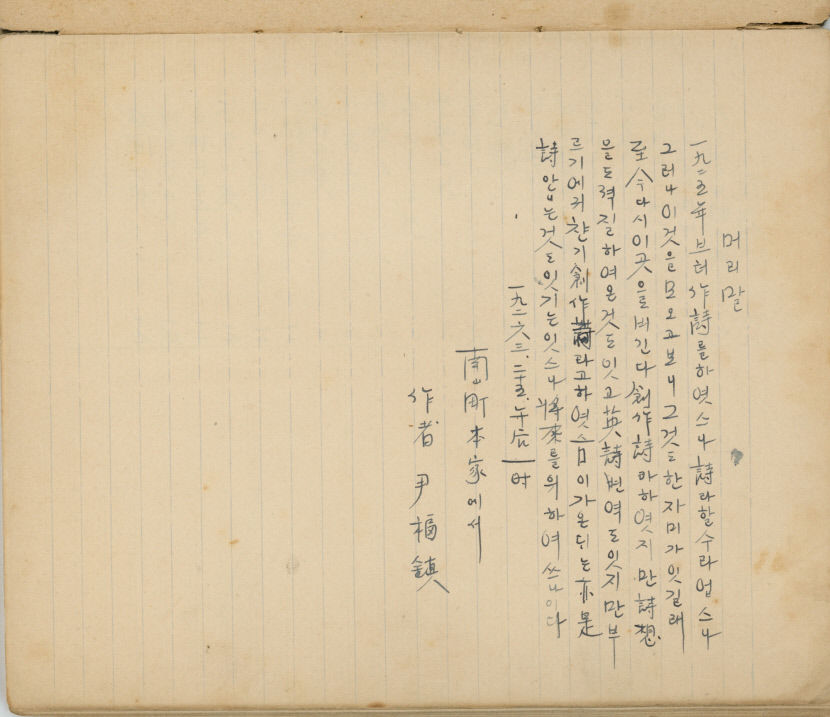 머리말
一九二五年부터 作詩를하엿스나 詩라할수라업스나
그러나이것을모으고보니 그것도한자미가잇길래
至今다시이곳으로벼긴다 創作詩라하엿지만詩想
을도적질하여온것도잇고英詩번역도잇지만부
르기에귀찬기創作詩라고하엿슴 이가온듸는亦是
詩안인는것도잇기는잇스나將來를위하여쓰나이다
一九二六 三. 二十五. 午后一时
南山町本家에서
作者 尹福鎭